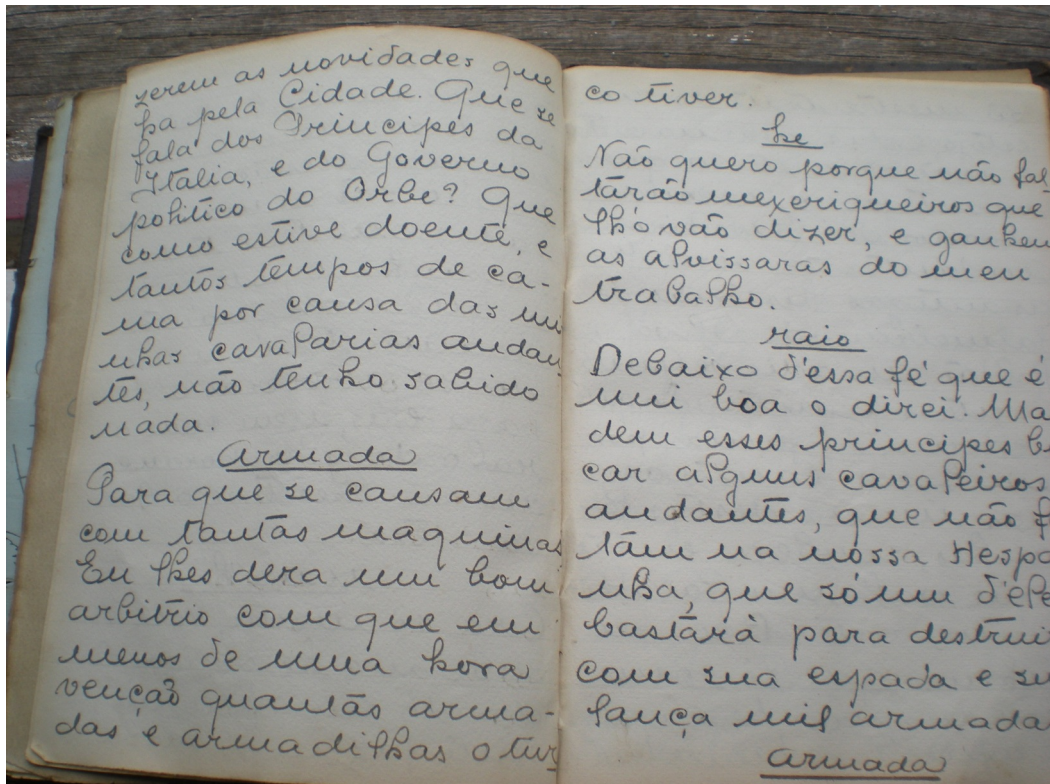 zerem as novidades que
ha pela Cidade. Que se
fala dos Principes da
Italia, e do Governo
politico do Orbe? Que
como estive doente, e
tantos tempos de ca-
ma por causa das mi
nhas cavalarias andan
tes, não tenho sabido
nada.
Armada
Para que se cansam
com tantas maquinas
Eu lhes dera um bom
arbitrio com que em
menos de uma hora
vençaõ quantas arma-
das e armadilhas o tur
co tiver.
he
Não quero porque não fal
tarão mexeriqueiros que
lhó vão dizer, e ganhem
as alvissaras do meu
trabalho.
raio
Debaixo d'essa fé que é
mui boa o direi. Ma
dem esses principes b
car alguns cavaleiros
andantes, que não f
tam na nossa Hespa
nha, que só um d'ele
bastará para destrui
com sua espada e su
lança mil armada
Armada